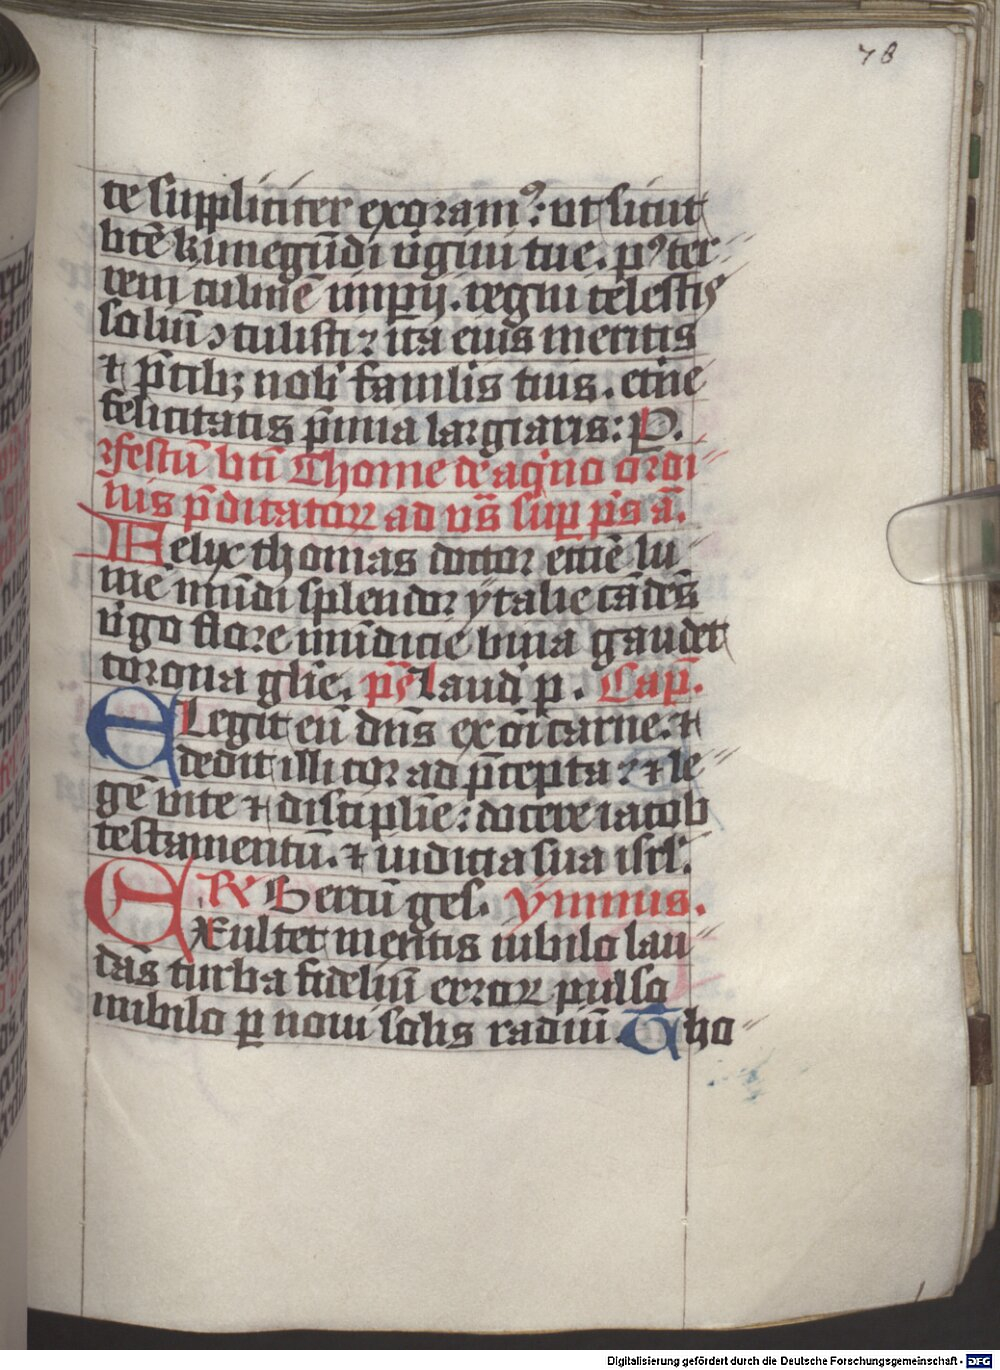 78
te suppliciter exoram⁹: vt sicut
btē kunegūdi v̓gini tue. p⁹ ter-
reni culmē imꝑij. regni celestis
soliū ꝯtulisti: ita eius meritis
⁊ p̄cib; nob̓ famulis tuis. et̓ne
felicitatis p̄mia largiaris: P.
In festū bt̄i Thome de aq̓no ordi-
nis p̄dicatoꝝ ad vs̄ suꝑ p̄s ā.
Felix thomas doctor eccīe lu-
mē mūdi splendor ytalie cādēs
v̓go flore mūdicie bina gaudet
corona glīe. ps̄ Laud̓ p. Cap̄.
ELegit eū dn̄s ex oī carne. ⁊
dedit illi cor ad p̄cepta: ⁊ le-
gē vite ⁊ disciplīe: docere iacob
testamentū. ⁊ iudicia sua isrl̓.
R̓ Sertū ges. ymnus.
EXultet mentis iubilo lau-
dās turba fideliū erroꝝ pulso
nubilo ꝑ noui solis radiū. Tho-
Digitalisierung gefördert durch die Deutsche Forschungsgemeinschaft - DFG